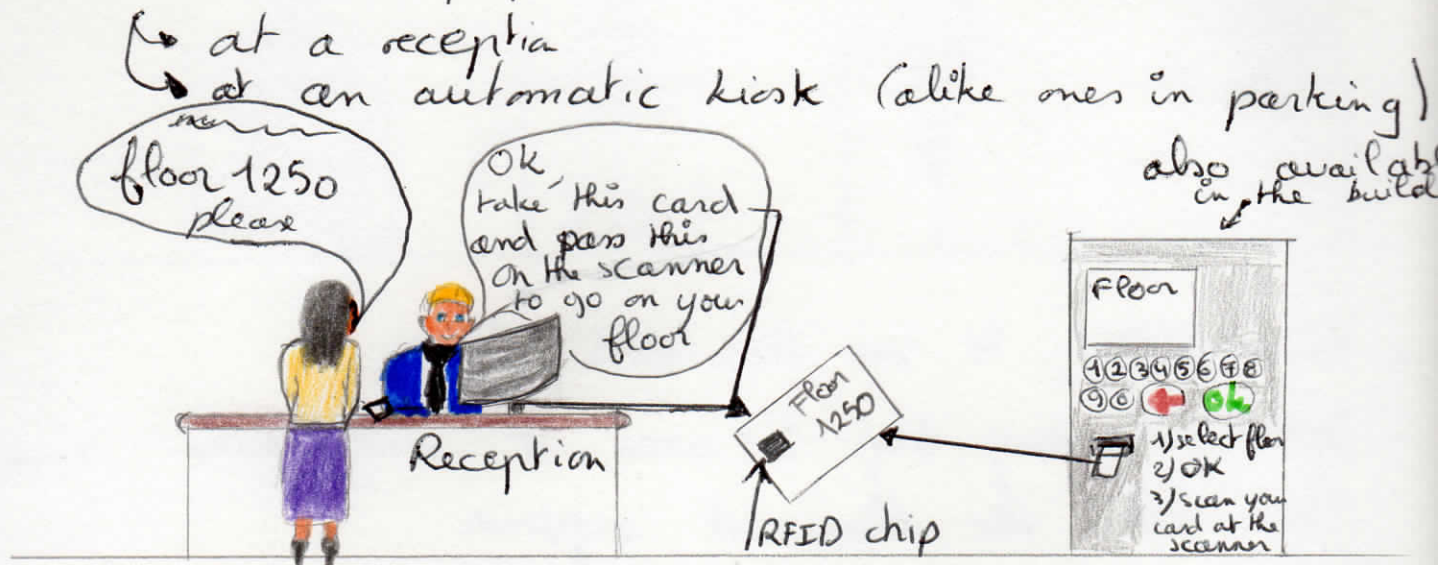 at a reception
at an automatic kiosk (alike ones in parking)
also availab
in the build
floor 1250
please
Ok,
take this card
and pass this
on the scanner
to go on your
floor
Reception
Floor
1250
RFID chip
Floor
1 2 3 4 5 6 7 8
9 0 ok
1) select floor
2) OK
3) scan your
card at the
scanner